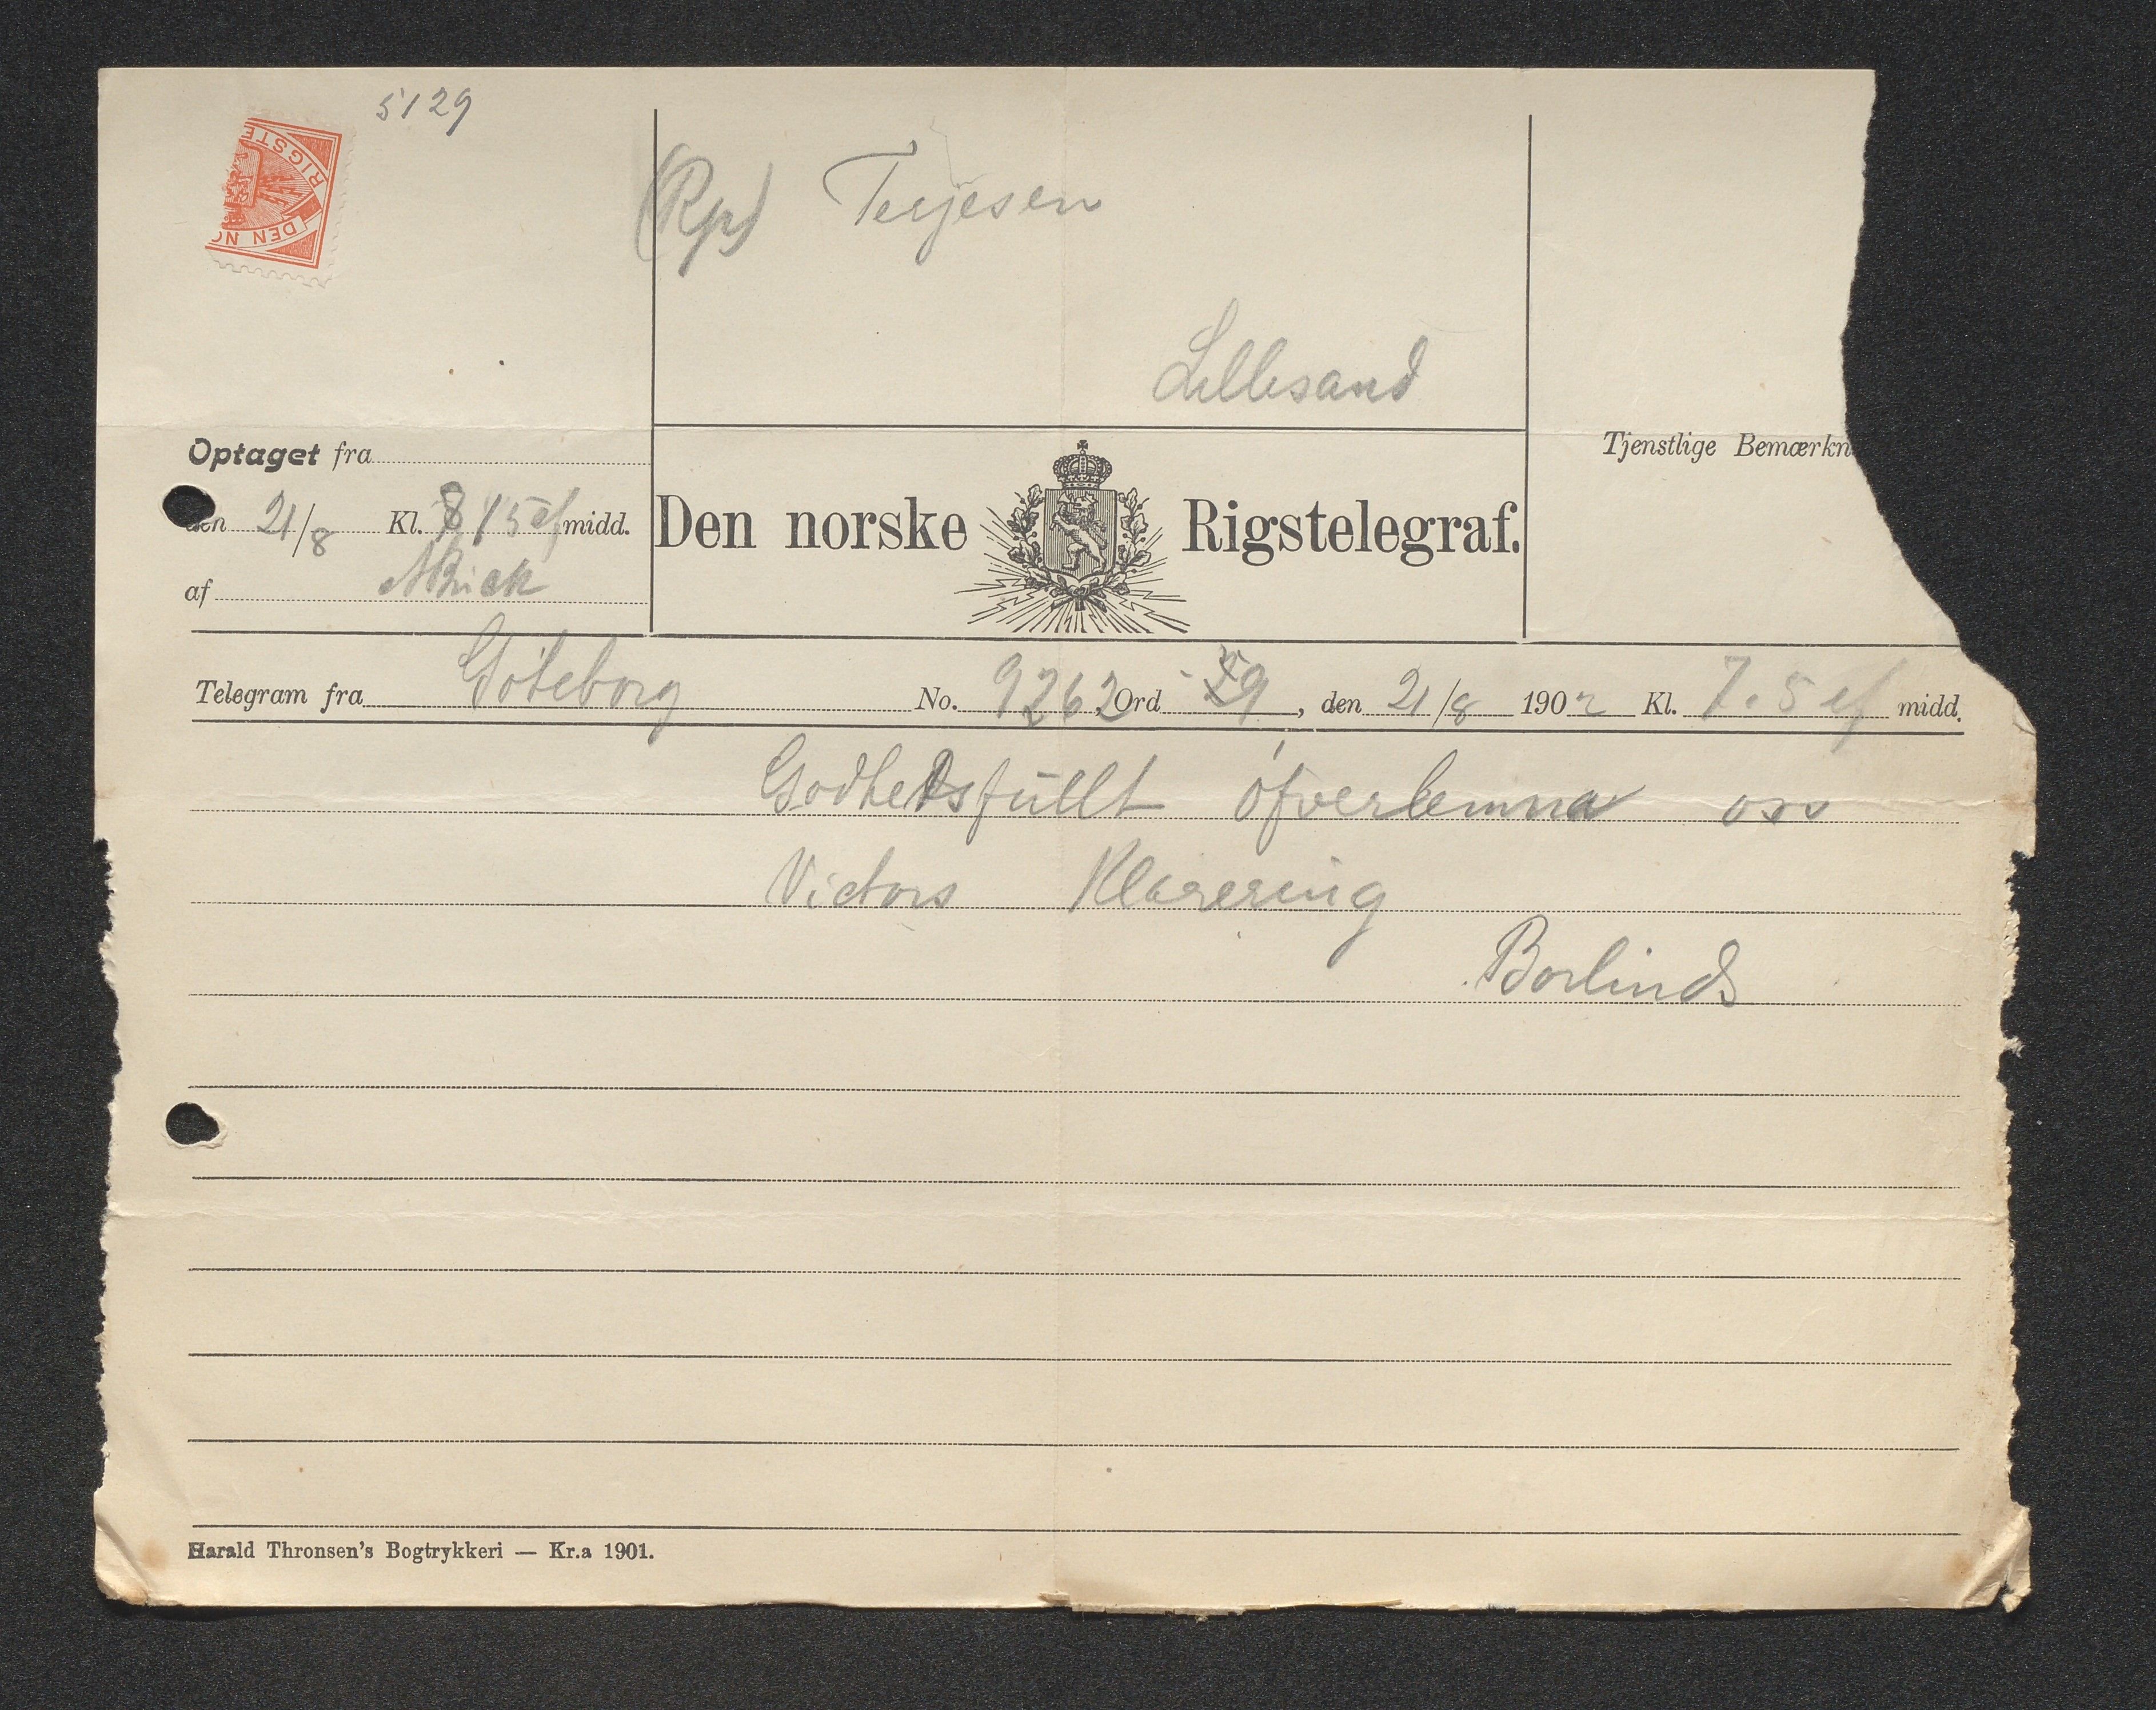 5129
RIGSTE
DEN NO
(Rp) Terjesen
Lillesand
Optaget fra
den 21/8 Kl. 815 ef midd.
af
Den norske Rigstelegraf.
Tjenstlige Bemærkn
Telegram fra Göteborg No. 9262 Ord 9, den 21/8 1902 Kl. 7.5 ef midd.
Godhedsfullt öfverlemna oss
Victors Klarering
Borlinds
Harald Thronsen's Bogtrykkeri — Kr.a 1901.